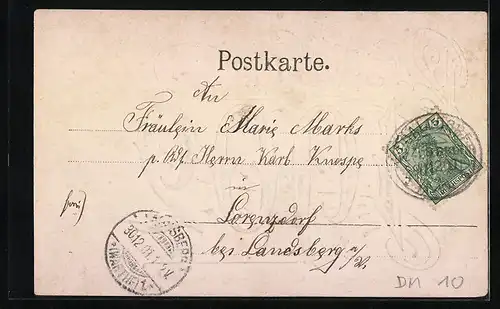 Postkarte.
An
Fräulein Marie Marks
p. Adr. Herrn Karl Knospe
in
Lorenzdorf
bei Landsberg a/W.
LANDSBERG
30.12.
(WARTHE)
5
DM 10